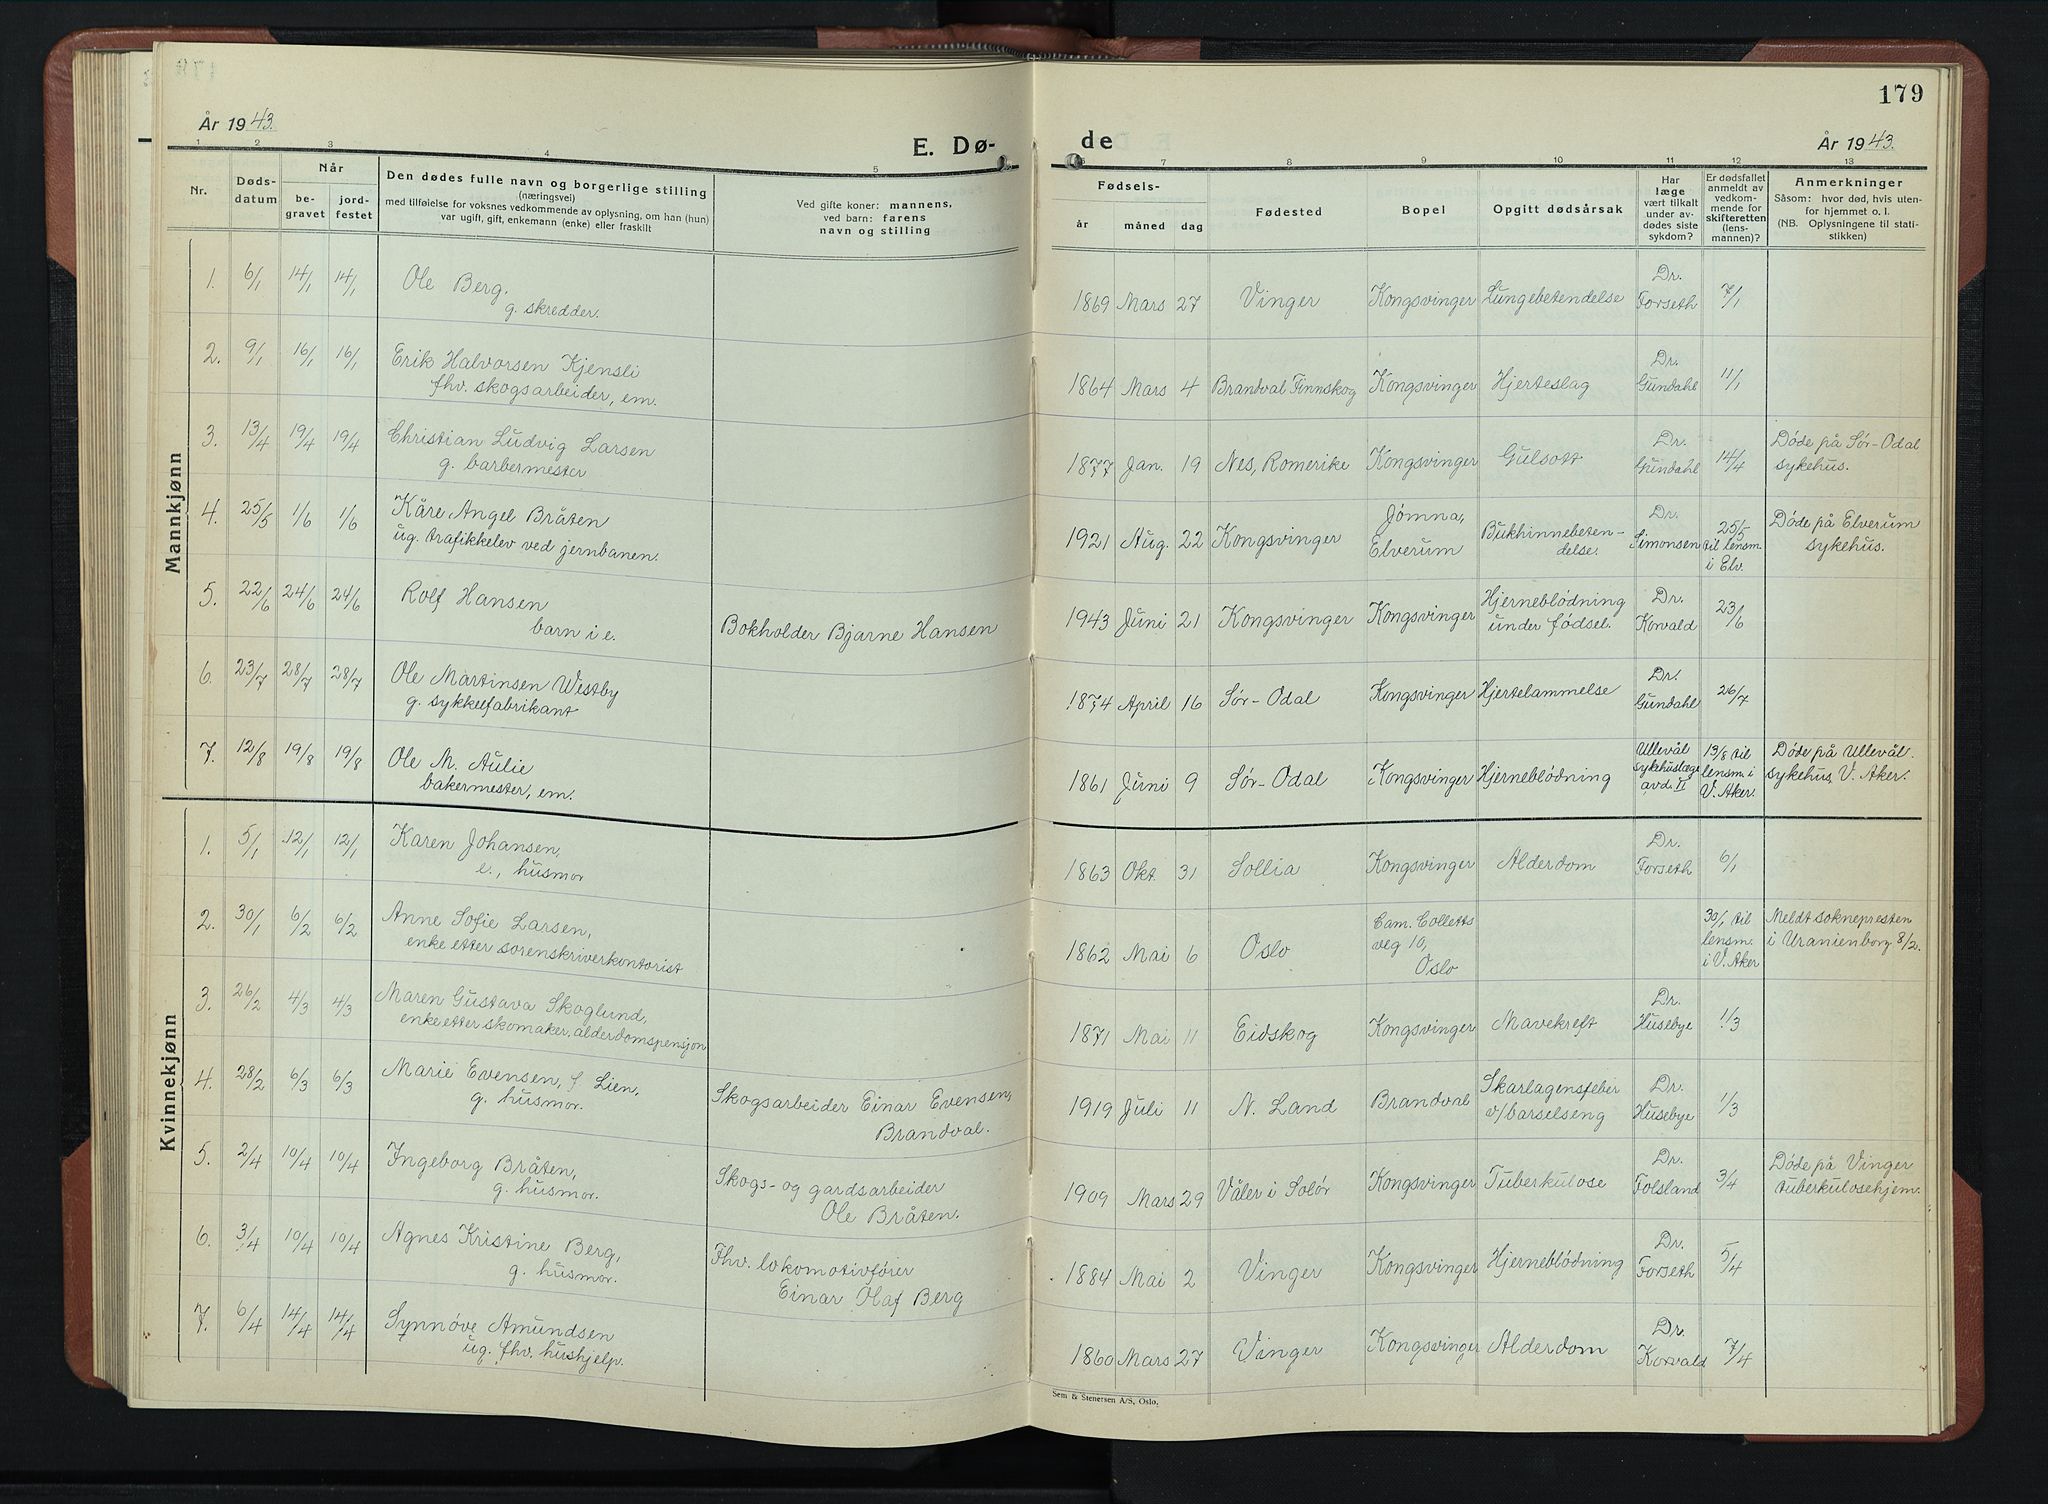 179
År 1943.
E. Dø-
de
År 1943.
1 2 3 4 5
6 7 8 9 10 11 12 13
Nr.
Døds-
datum
Når
be-
gravet
jord-
festet
Den dødes fulle navn og borgerlige stilling
(næringsvei)
med tilføielse for voksnes vedkommende av oplysning, om han (hun)
var ugift, gift, enkemann (enke) eller fraskilt
Ved gifte koner: mannens,
ved barn: farens
navn og stilling
Fødsels-
år måned dag
Fødested
Bopel
Opgitt dødsårsak
Har
læge
vært tilkalt
under av-
dødes siste
sykdom?
Er dødsfallet
anmeldt av
vedkom-
mende for
skifteretten
(lens-
mannen)?
Anmerkninger
Såsom: hvor død, hvis uten-
for hjemmet o. l.
(NB. Oplysningene til stati-
stikken)
Mannkjønn
1. 6/1 14/1 14/1 Ole Berg,
g. skredder.
1869 Mars 27 Vinger Kongsvinger Lungebetendelse Dr.
Forseth 7/1
2. 9/1 16/1 16/1 Erik Halvorsen Kjensli
fhv. skogsarbeider, em.
1864 Mars 4 Brandval Finnskog Kongsvinger Hjerteslag Dr.
Gundahl 11/1
3. 13/4 19/4 19/4 Christian Ludvig Larsen
g. barbermester
1877 Jan. 19 Nes, Romerike Kongsvinger Gulsott Dr.
Gundahl 14/4 Døde på Sør-Odal
sykehus.
4. 25/5 1/6 1/6 Kåre Angel Bråten
ug. trafikkelev ved jernbanen.
1921 Aug. 22 Kongsvinger Jømna,
Elverum Bukhinnebeten-
delse. Dr.
Simonsen 25/5
til lensm.
i Elv. Døde på Elverum
sykehus.
5. 22/6 24/6 24/6 Rolf Hansen
barn i e. Bokholder Bjarne Hansen
1943 Juni 21 Kongsvinger Kongsvinger Hjerneblödning
under födsel. Dr.
Korvald 23/6
6. 23/7 28/7 28/7 Ole Martinsen Westby
g. sykkelfabrikant
1874 April 16 Sør-Odal Kongsvinger Hjertelammelse Dr.
Gundahl 26/7
7. 12/8 19/8 19/8 Ole M. Aulie
bakermester, em.
1861 Juni 9 Sør-Odal Kongsvinger Hjerneblödning Ullevål
sykehuslæge
avd. II 13/8 til
lensm. i
V. Aker. Døde på Ullevål
sykehus, V. Aker.
Kvinnekjønn
1. 5/1 12/1 12/1 Karen Johansen,
e., husmor
1863 Okt. 31 Sollia Kongsvinger Alderdom Dr.
Forseth 6/1
2. 30/1 6/2 6/2 Anne Sofie Larsen,
enke etter sorenskriverkontorist
1862 Mai 6 Oslo Cam. Colletts
veg 10,
Oslo 30/1 til
lensm.
i V. Aker Meldt soknepresten
i Uranienborg 8/2.
3. 26/2 4/3 4/3 Maren Gustava Skoglund,
enke etter skomaker, alderdomspensjon
1871 Mai 11 Eidskog Kongsvinger Mavekreft Dr.
Husebye 1/3
4. 28/2 6/3 6/3 Marie Evensen, f. Lien,
g. husmor. Skogsarbeider Einar Evensen,
Brandval.
1919 Juli 11 N. Land Brandval Skarlagensfeber
v/barselseng Dr.
Husebye 1/3
5. 2/4 10/4 10/4 Ingeborg Bråten,
g. husmor. Skogs- og gardsarbeider
Ole Bråten.
1909 Mars 29 Våler i Solør Kongsvinger Tuberkulose Dr.
Folsland 3/4 Døde på Vinger
tuberkulosehjem.
6. 3/4 10/4 10/4 Agnes Kristine Berg,
g. husmor. Fhv. lokomotivfører
Einar Olaf Berg
1884 Mai 2 Vinger Kongsvinger Hjerneblödning Dr.
Forseth 5/4
7. 6/4 14/4 14/4 Synnöve Amundsen
ug. fhv. hushjelp.
1860 Mars 27 Vinger Kongsvinger Alderdom Dr.
Korvald 7/4
Sem & Stenersen A/S, Oslo.